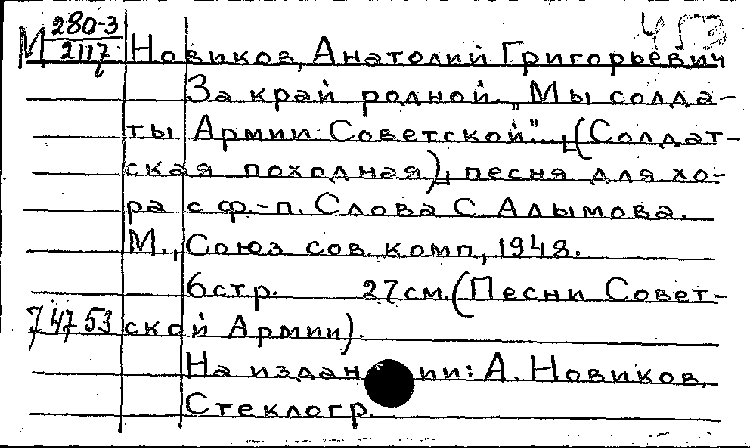 М 280-3
2117
Новиков, Анатолий Григорьевич
За край родной. „Мы солда-
ты Армии Советской", (Солдат-
ская походная), песня для хо-
ра с ф.-п. Слова С. Алымова.
М., Союз сов. комп., 1948.
6 стр. 27 см. (Песни Совет-
74753 ской Армии).
На издании: А. Новиков.
Стеклогр.